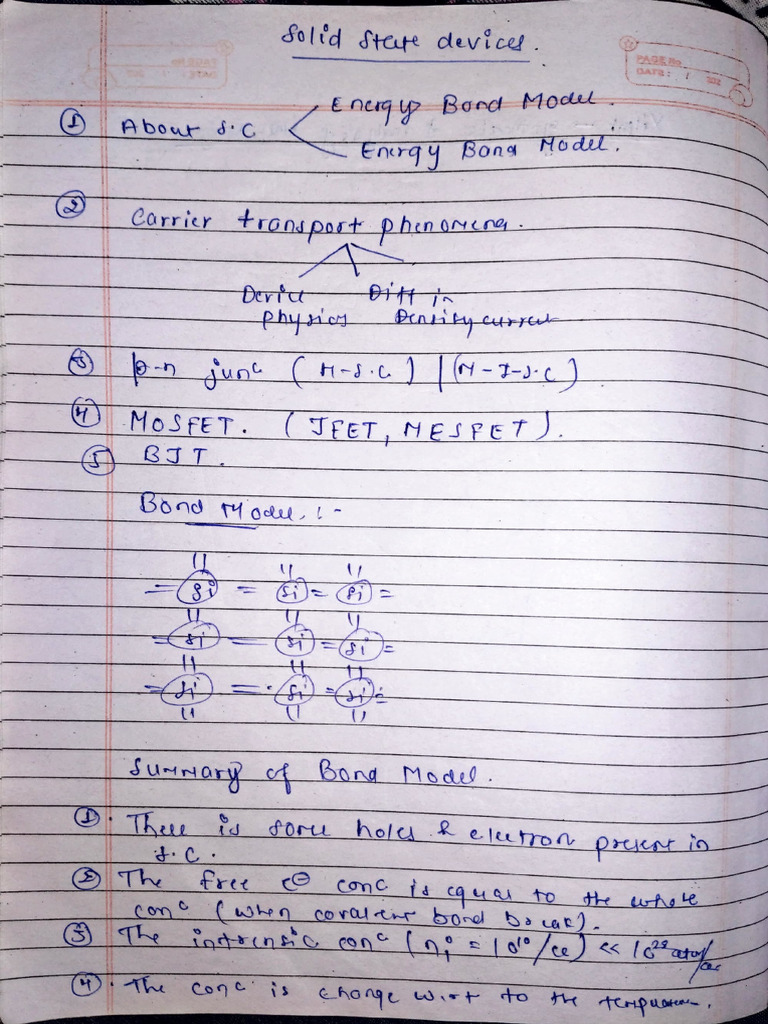 Solid State devices.
PAGE No
DATE: / / 202
① About S.C
Energy Bond Model.
Energy Bond Model.
② Carrier transport phenomena.
Device Diff in
physics Density current
③ p-n juncⁿ (M-S.C) | (M-I-S.C)
④ MOSFET. (JFET, MESFET).
⑤ BJT.
Bond Model :-
Si = Si = Si =
= Si = Si = Si =
= Si = Si = Si =
Summary of Bond Model.
① There is some holes & electron present in
S.C.
② The free e⊖ conc is equal to the whole
concⁿ (when covalent bond break).
③ The intrensic conc (ni = 10¹⁰/cc) << 10²³ atom/cc
④ The conc. is change w.r.t to the